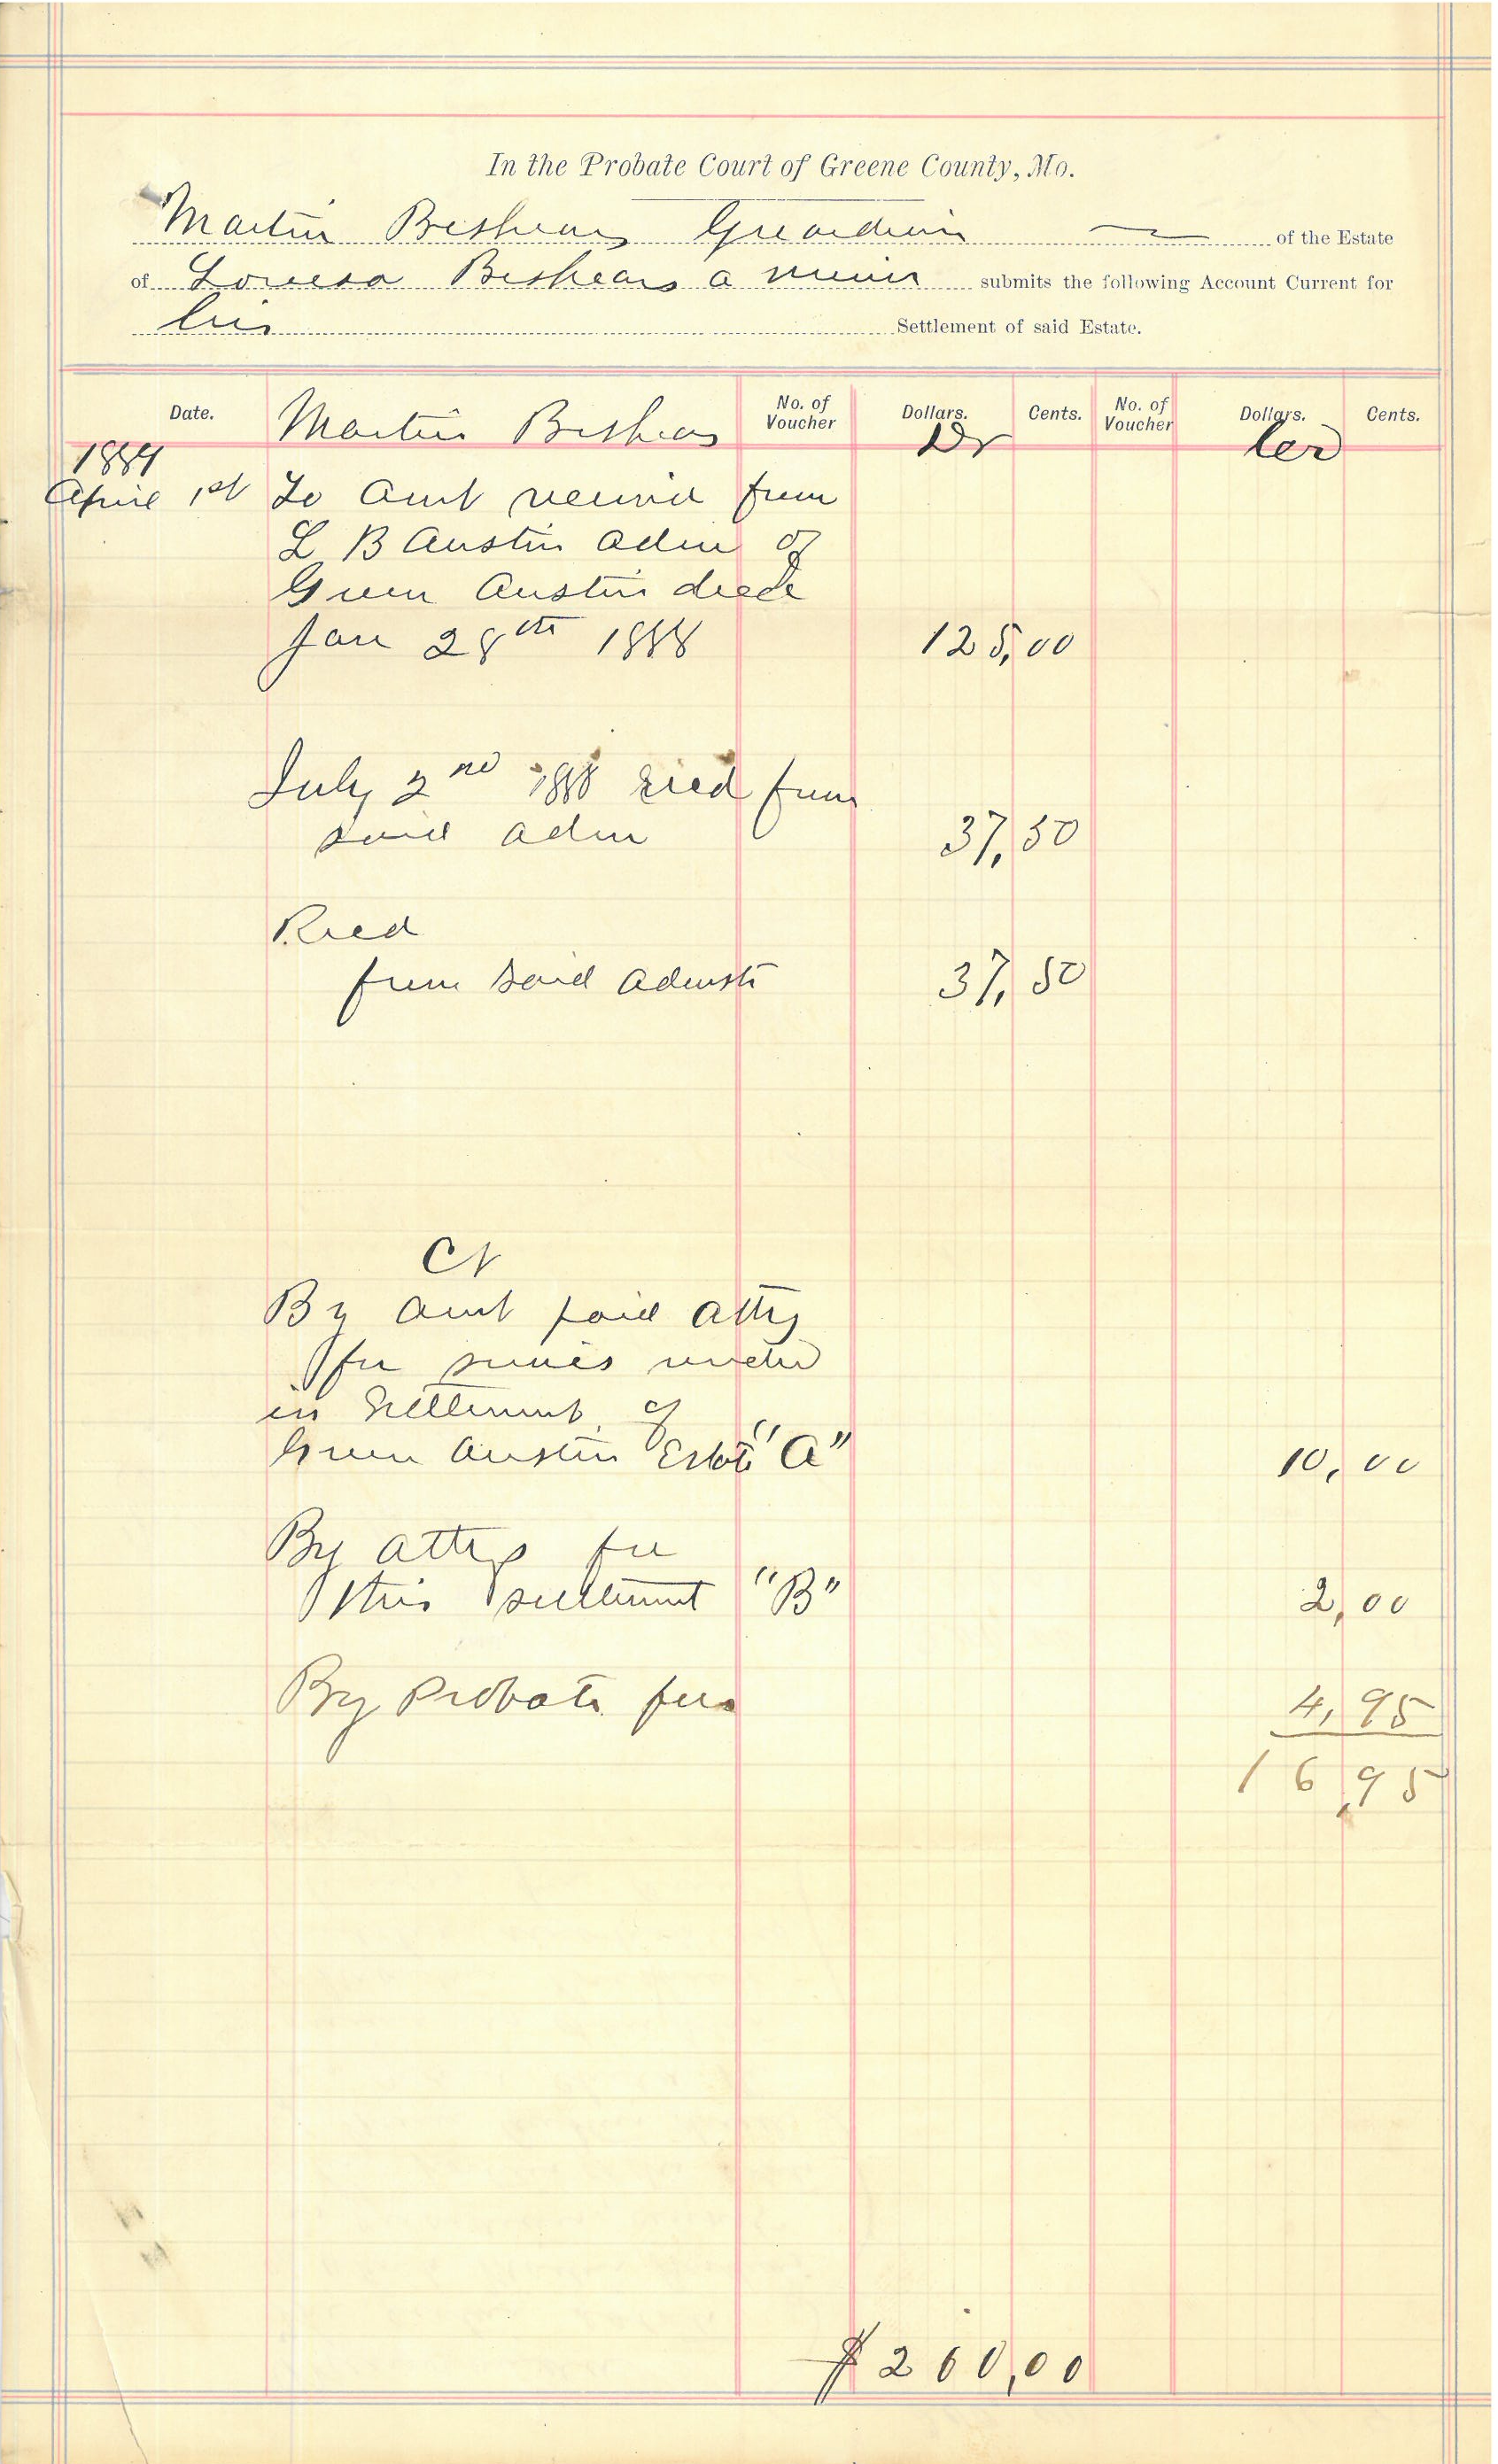 In the Probate Court of Greene County, Mo.
Martin Beshears Guardian of the Estate
of Louesa Beshears a minor submits the following Account Current for
his Settlement of said Estate.
Date. Martin Beshears No. of Voucher Dollars. Cents. No. of Voucher Dollars. Cents.
Dr Cr
1889
April 1st To Amt received from
L B Austin Adm of
Green Austin decd
Jan 28th 1888 125,00
July 2nd 1888 Recd from
said Adm 37,50
Recd
from said Admst 37,50
Cr
By Amt paid Atty
for services render
in Settlement of
Green Austin Estate "A" 10,00
By Attys fee
this settlement "B" 2,00
By Probate fees 4,95
16,95
$200,00